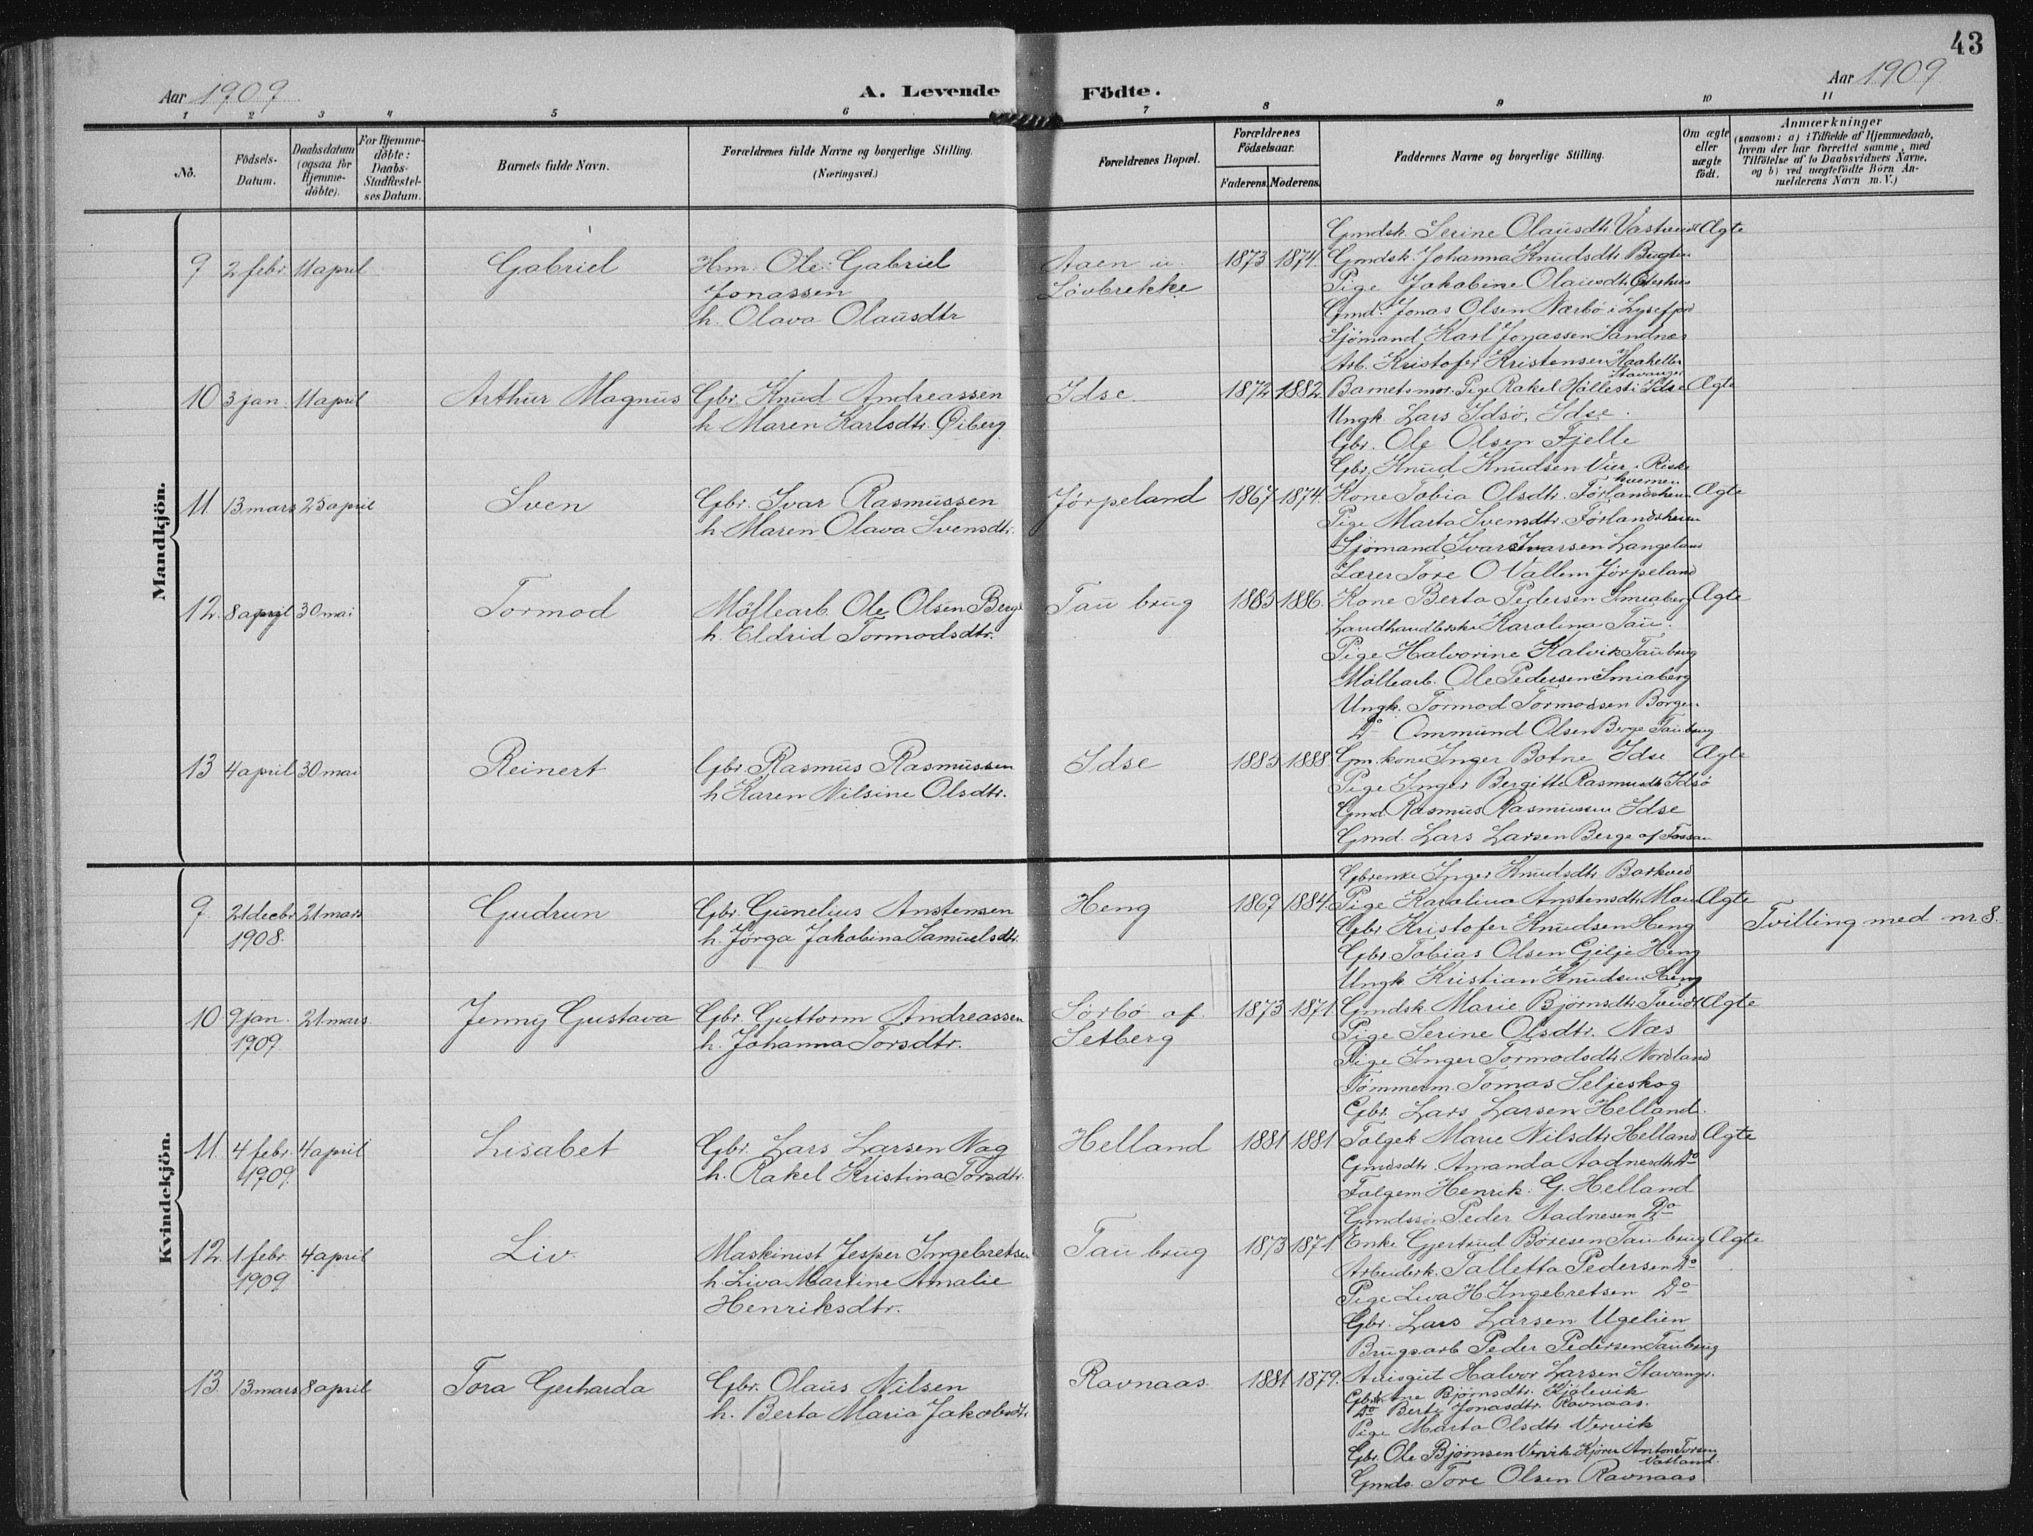 43
Aar 1909 A. Levende Födte. Aar 1909
1 2 3 4 5 6 7 8 9 10 11
No.
Födsels-
Datum.
Daabsdatum
(ogsaa for
Hjemme-
döbte).
For Hjemme-
döbte:
Daabs-
Stadfæstel-
ses Datum.
Barnets fulde Navn.
Forældrenes fulde Navne og borgerlige Stilling.
(Næringsvei.)
Forældrenes Bopæl.
Forældrenes
Födselsaar.
Faderens. Moderens.
Faddernes Navne og borgerlige Stilling.
Om ægte
eller
uægte
födt.
Anmærkninger
(saasom: a) i Tilfælde af Hjemmedaab,
hvem der har forrettet samme, med
Tilföielse af to Daabsvidners Navne,
og b) ved uægtefödte Börn An-
melderens Navn m. V.)
Mandkjön.
9 2 febr. 11 april Gabriel
Hm. Ole Gabriel
Jonassen
h. Olava Olausdtr
Aaen u.
Løvbrekke
1873 1874. Ægte
Gmdsk. Serine Olausdtr Vastveit
Gmdsk. Johanna Knudsdtr
Pige Jakobine Olausdtr
Gmd. Jonas Olsen Nærbö i Lysefjord
Sjömand Karl Jonassen Sandnes
Arb. Kristofer Kristensen
Stavanger
10 3 jan. 11 april Arthur Magnus
Gbr. Knud Andreassen
h. Maren Karlsdtr. Öiberg
Idse 1872 1882 Ægte
Barnets mor. Pige Rakel Høllesli Idse
Ungk Lars Idsö, Idse.
Gbr. Ole Olsen Fjelle
Gbr. Knud Knudsen Vier. Riske
kvernen
11 13 mars 25 april Sven
Gbr. Ivar Rasmussen
h Maren Olava Svensdtr.
Jørpeland 1867 1874. Ægte
Kone Tobia Olsdtr. Førlandsheim
Pige Marta Svensdtr. Førlandsheim
Sjömand Ivar Ivarsen Langeland
Lærer Tore O Vallem Jørpeland
12. 8 april 30 mai Tormod
Møllearb. Ole Olsen Berge
h. Eldrid Tormodsdtr.
Tau brug 1885 1886. Ægte
Kone Berta Pedersen Smiaberg
Landhandlerske Karolina Tau.
Pige Halvorine Kalvik Taubrug
Møllearb. Ole Pedersen Smiaberg
Ungk. Tormod Tormodsen Borgen
Do Ommund Olsen Berge Taubrug
13 4 april 30 mai Reinert
Gbr. Rasmus Rasmussen
h Karen Nilsine Olsdtr.
Idse 1885 1888 Ægte
Gm.kone Inger Botne Idse
Pige Inger Bergitte Rasmusdtr Idsö
Gmd Rasmus Rasmussen Idse
Gmd. Lars Larsen Berge af Fossan
Kvindekjön.
9. 21 decbr. 21 mars Gudrun
1908.
Gbr. Gunelius Anstensen
h. Jørga Jakobina Samuelsdtr.
Heng 1869 1884. Ægte Tvilling med nr 8.
Gbrenke Inger Knudsdtr Barkved
Pige Karolina Anstensdtr
Gbr Kristofer Knudsen Heng
Gbr Tobias Olsen Gilje Heng
Ungk Kristian Knudsen Heng
10 9 jan. 21 mars. Jenny Gustava
1909.
Gbr. Guttorm Andreassen
h. Johanna Torsdtr.
Sørbö af
Setberg
1873 1871 Ægte
Gmdsk. Marie Björnsdtr. Tveidt
Pige Serine Olsdtr. Næs
Pige Inger Tormodsdtr. Nordland
Tømmerm. Tomas Seljeskog
Gbr. Lars Larsen Helland.
11 4 febr. 4 april Lisabet
1909.
Gbr. Lars Larsen Nag
h. Rakel Kristina Torsdtr.
Helland 1881 1881 Ægte
Folgek Marie Nilsdtr. Helland
Gmdsdtr. Amanda Aadnesdtr. Do
Folgem Henrik G. Helland
Gmdssön Peder Aadnesen Do
12. 1 febr. 4 april Liv.
1909
Maskinist Jesper Ingebretsen
h. Liva Martine Amalie
Henriksdtr.
Tau brug 1873 1871 Ægte
Enke Gjertrud Böresen Taubrug
Arbeidsk. Talletta Pedersen Do
Pige Liva H Ingebretsen Do
Gbr. Lars Larsen Ugelien
Brugsarb Peder Pedersen Taubrug
13. 13 mars 8 april Tora Gerharda
Gbr. Olaus Nilsen
h. Berta Maria Jakobsdtr.
Ravnaas. 1881 1879.
Avisgut Halvor Larsen Stavanger.
Björnsdtr.
Do Berte Jonasdtr. Ravnaas.
Pige Marta Olsdtr Vervik
Gbr. Ole Björnsen Vervik Anton
Gmds. Tore Olsen Ravnaas.